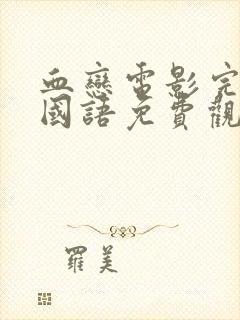 血戀電影完
國語免費觀
羅美